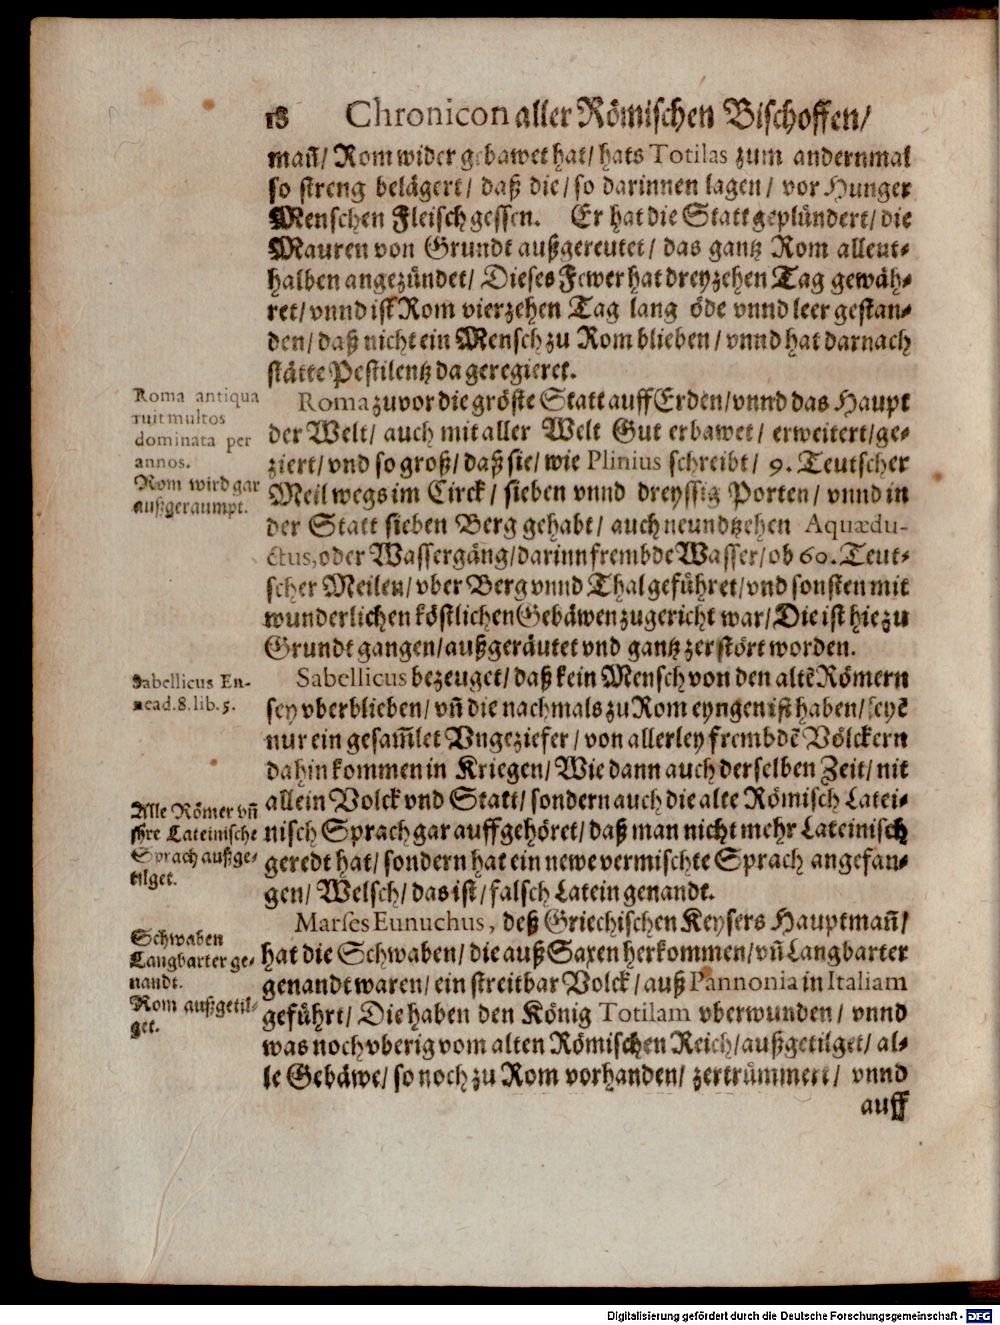 18 Chronicon aller Römischen Bischoffen/
mañ/ Rom wider gebawet hat/ hats Totilas zum andernmal
so streng belägert/ daß die/ so darinnen lagen/ vor Hunger
Menschen Fleisch gessen. Er hat die Statt geplündert/ die
Mauren von Grundt außgereutet/ das gantz Rom allent-
halben angezündet/ Dieses Fewer hat dreyzehen Tag gewäh-
ret/ vnnd ist Rom vierzehen Tag lang öde vnnd leer gestan-
den/ daß nicht ein Mensch zu Rom blieben/ vnnd hat darnach
stätte Pestilentz da geregieret.
Roma antiqua
ruit multos
dominata per
annos.
Rom wird gar
außgeraumpt.
Roma zuvor die gröste Statt auff Erden/ vnnd das Haupt
der Welt/ auch mit aller Welt Gut erbawet/ erweitert/ ge-
ziert/ vnd so groß/ daß sie/ wie Plinius schreibt/ 9. Teutscher
Meil wegs im Circk/ sieben vnnd dreyssig Porten/ vnnd in
der Statt sieben Berg gehabt/ auch neundtzehen Aquædu-
ctus, oder Wassergäng/ darinn frembde Wasser/ ob 60. Teut-
scher Meilen/ vber Berg vnnd Thal geführet/ vnd sonsten mit
wunderlichen köstlichen Gebäwen zugericht war/ Die ist hie zu
Grundt gangen/ außgeräutet vnd gantz zerstört worden.
Sabellicus En-
nead. 8. lib. 5.
Sabellicus bezeuget/ daß kein Mensch von den altẽ Römern
sey vberblieben/ vñ die nachmals zu Rom eyngenist haben/ seyẽ
nur ein gesam̃let Vngeziefer/ von allerley frembdẽ Völckern
dahin kommen in Kriegen/ Wie dann auch derselben Zeit/ nit
allein Volck vnd Statt/ sondern auch die alte Römisch Latei-
nisch Sprach gar auffgehöret/ daß man nicht mehr Lateinisch
geredt hat/ sondern hat ein newe vermischte Sprach angefan-
gen/ Welsch/ das ist/ falsch Latein genandt.
Alle Römer vñ
ihre Lateinische
Sprach außge-
tilget.
Marses Eunuchus, deß Griechischen Keysers Hauptmañ/
hat die Schwaben/ die auß Saxen herkommen/ vñ Langbarter
genandt waren/ ein streitbar Volck/ auß Pannonia in Italiam
geführt/ Die haben den König Totilam vberwunden/ vnnd
was noch vberig vom alten Römischen Reich/ außgetilget/ al-
le Gebäwe/ so noch zu Rom vorhanden/ zertrümmert/ vnnd
Schwaben
Langbarter ge-
nandt.
Rom außgetil-
get.
auff
Digitalisierung gefördert durch die Deutsche Forschungsgemeinschaft - DFG